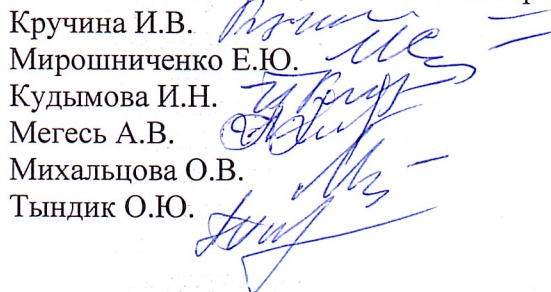 Кручина И.В.
Мирошниченко Е.Ю.
Кудымова И.Н.
Мегесь А.В.
Михальцова О.В.
Тындик О.Ю.